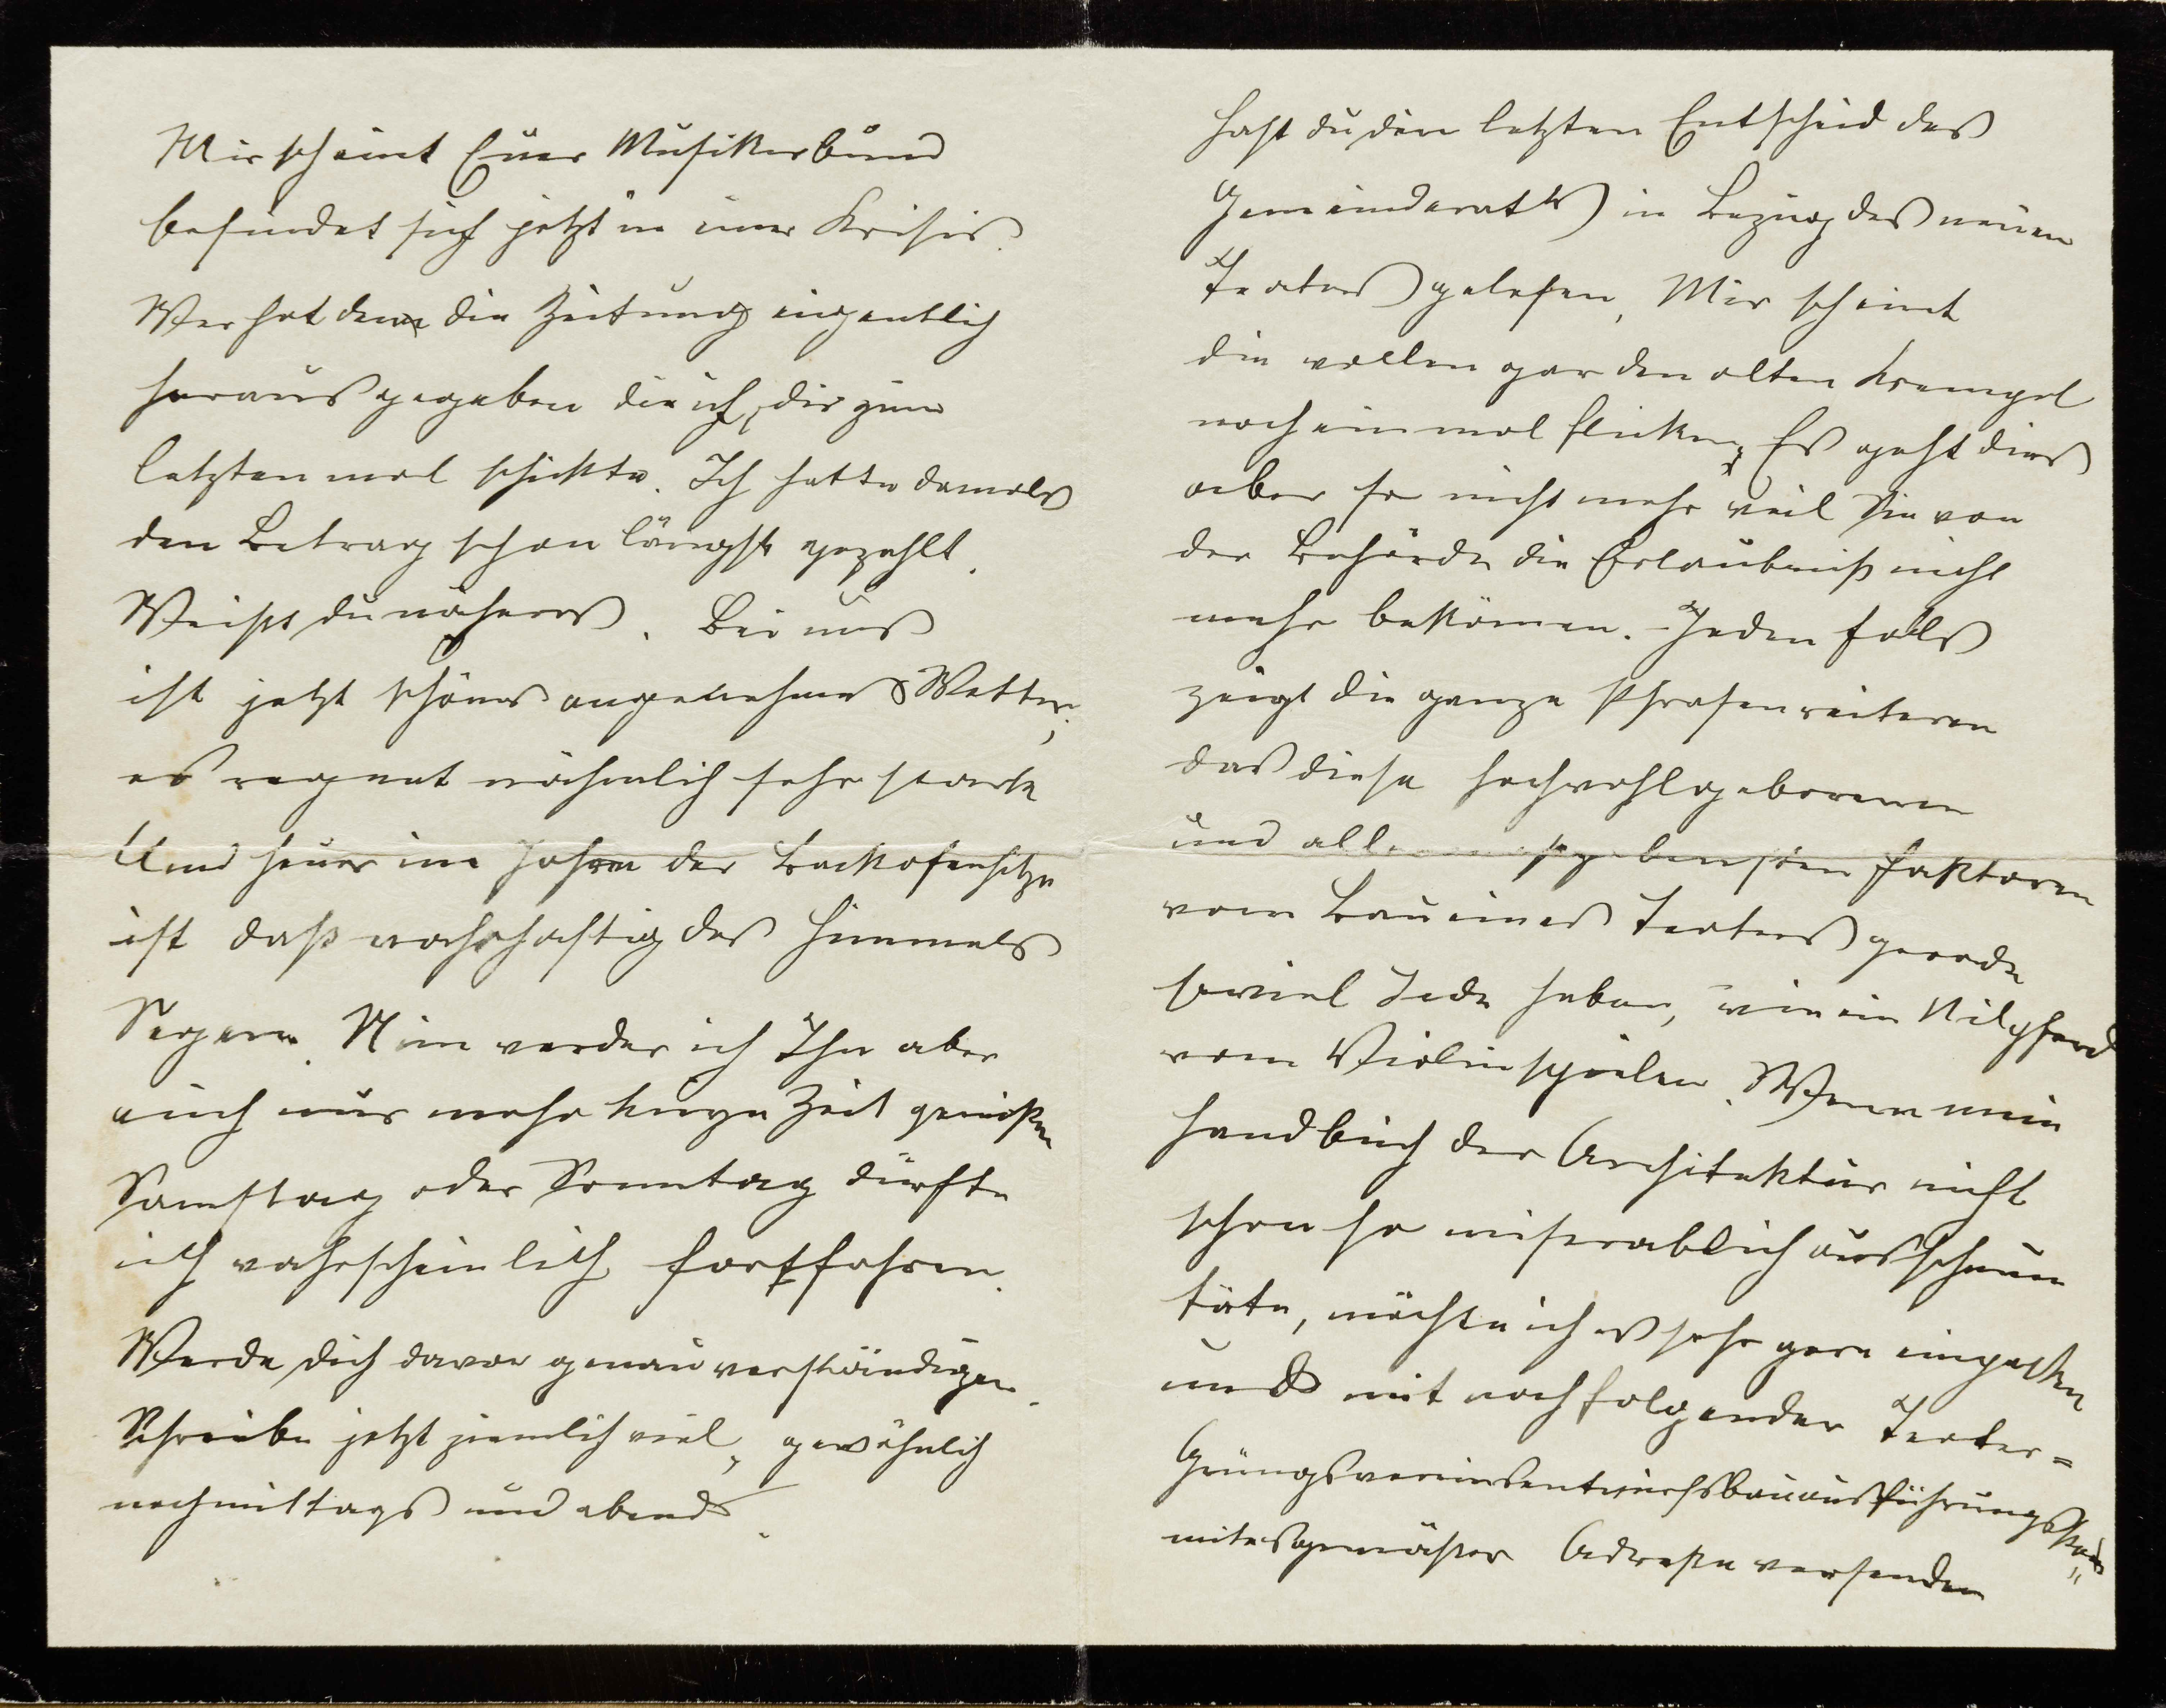 Mir scheint Euer Musikerbund
befindet sich jetzt in einer Krisis.
Wer hat denn die Zeitung eigentlich
herausgegeben die ich, dir zum
letztenmal schickte. Ich hatte damals
den Betrag schon längst gezahlt.
Weißt du näheres. Bei uns
ist jetzt schönes angenehmes Wetter,
es regnet nähmlich sehr stark
Und heuer im Jahre der Backofenhitze
ist daß wahrhaftig des Himmels
Segen. Nun werde ich Ihn aber
auch nur mehr kurze Zeit genießen
Samstag oder Sonntag dürfte
ich wahrscheinlich fortfahren.
Werde dich davon genau verständigen.
Schreibe jetzt ziemlich viel, gewöhnlich
nachmittags und abends.
Hast du den letzten Entscheid des
Gemeinderats in Bezug des neuen
Teaters gelesen, Mir scheint
die wollen gar den alten Krempel
noch einmal flicken, Es geht dies
aber so nicht mehr weil Sie von
der Behörde die Erlaubniß nicht
mehr bekömen. Jeden falls
zeigt die ganze Phrasenreiteren
das diese hochwohlgeborenen
und faktoren
vom Bau eines Teaters gerade
soviel Idee haben, wie ein Nilpferd
vom Violinspielen. Wenn mein
Handbuch der Architektur nicht
schon so miserablich ausschauen
täte, möchte ich es sehr gern einpacken
und mit nachfolgender Teater=
Grüngsvereinsentwurfsbauausführungsko„
miteßgemäßer Adreße versenden